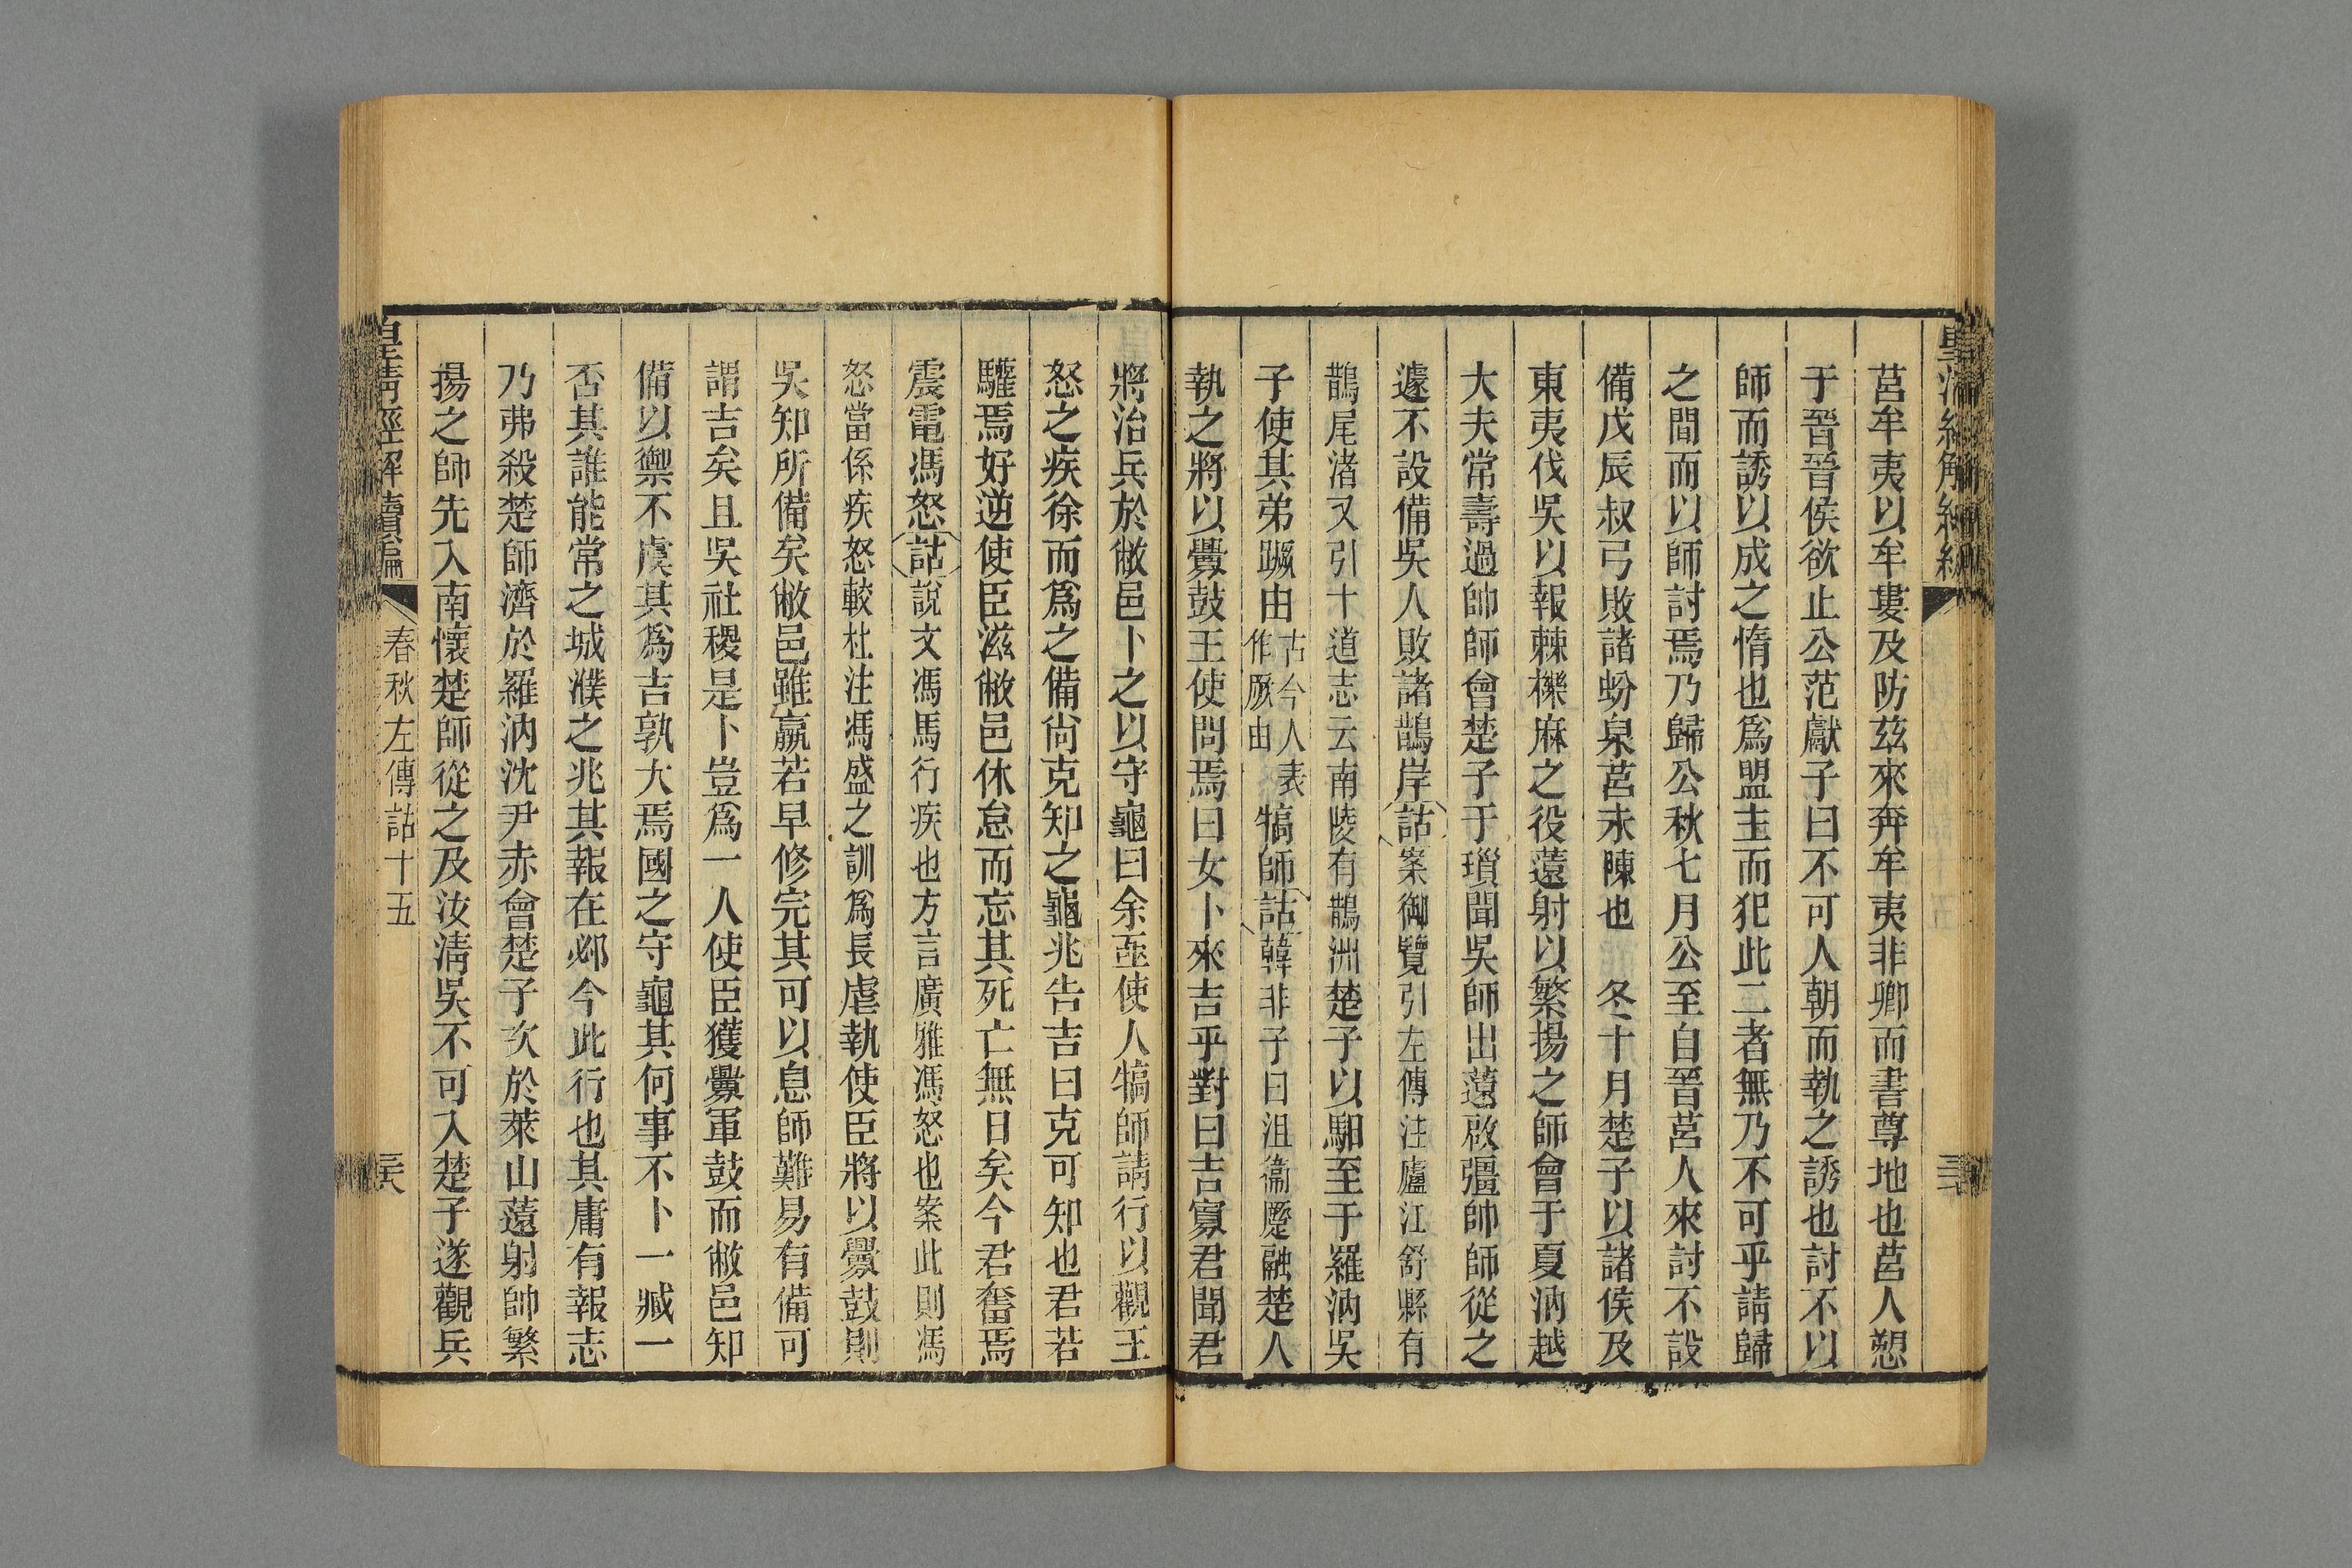 莒牟夷以牟婁及防茲來奔牟夷非卿而書尊地也莒人愬
于晉晉侯欲止公范獻子曰不可人朝而執之誘也討不以
師而誘以成之惰也爲盟主而犯此二者無乃不可乎請歸
之間而以師討焉乃歸公秋七月公至自晉莒人來討不設
備戊辰叔弓敗諸蚡泉莒未陳也　冬十月楚子以諸侯及
東夷伐吳以報棘櫟麻之役薳射以繁揚之師會于夏汭越
大夫常壽過帥師會楚子于瑣聞吳師出薳啟彊帥師從之
遽不設備吳人敗諸鵲岸詁案御覽引左傳注廬江舒縣有
鵲尾渚又引十道志云南陵有鵲洲楚子以馹至于羅汭吳
子使其弟蹶由古今人表作厥由犒師詁韓非子曰沮衞蹷融楚人
執之將以釁鼓王使問焉曰女卜來吉乎對曰吉寡君聞君
將治兵於敝邑卜之以守龜曰余亟使人犒師請行以觀王
怒之疾徐而爲之備尚克知之龜兆告吉曰克可知也君若
驩焉好逆使臣滋敝邑休怠而忘其死亡無日矣今君奮焉
震電馮怒詁說文馮馬行疾也方言廣雅馮怒也案此則馮
怒當係疾怒較杜注馮盛之訓爲長虐執使臣將以釁鼓則
吳知所備矣敝邑雖羸若早修完其可以息師難易有備可
謂吉矣且吳社稷是卜豈爲一人使臣獲釁軍鼓而敝邑知
備以禦不虞其爲吉孰大焉國之守龜其何事不卜一臧一
否其誰能常之城濮之兆其報在邲今此行也其庸有報志
乃弗殺楚師濟於羅汭沈尹赤會楚子次於萊山薳射帥繁
揚之師先入南懷楚師從之及汝清吳不可入楚子遂觀兵
皇清經解續編　春秋左傳詁十五